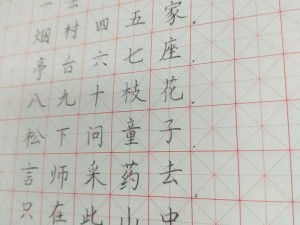 一去
烟村四五家.
亭台六七座.
八九十枝花.
松下问童子.
言师采药去
只在此山中